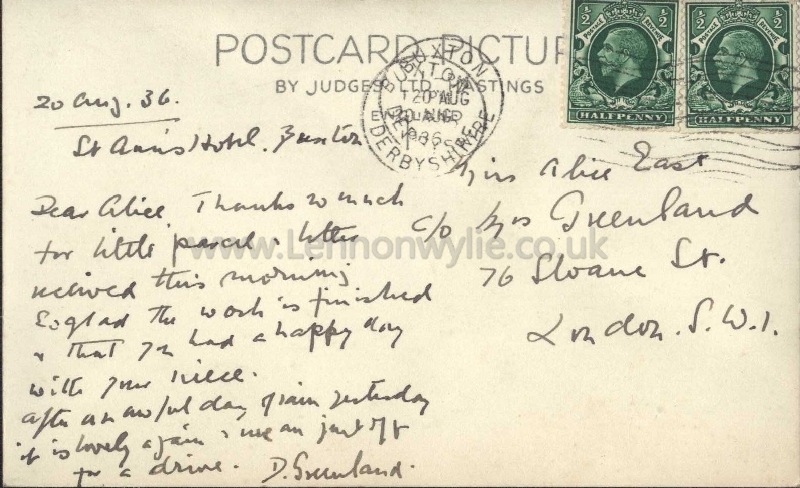 POSTCARD PICTU
BY JUDGES LTD, HASTINGS
ENGLAND
BUXTON
20 AUG
36
DERBYSHIRE
POSTAGE REVENUE
1/2 1/2
HALFPENNY
POSTAGE REVENUE
1/2 1/2
HALFPENNY
20 Aug. 36.
St Anns Hotel, Buxton
Dear Alice Thanks so much
for little parcel & letter
received this morning
So glad the work is finished
& that you had a happy day
with your niece.
after an awful day of rain yesterday
it is lovely again & we are just off
for a drive. D. Greenland.
Miss Alice East
c/o Mrs Greenland
76 Sloane St.
London. S.W.1.
www.Lennonwylie.co.uk